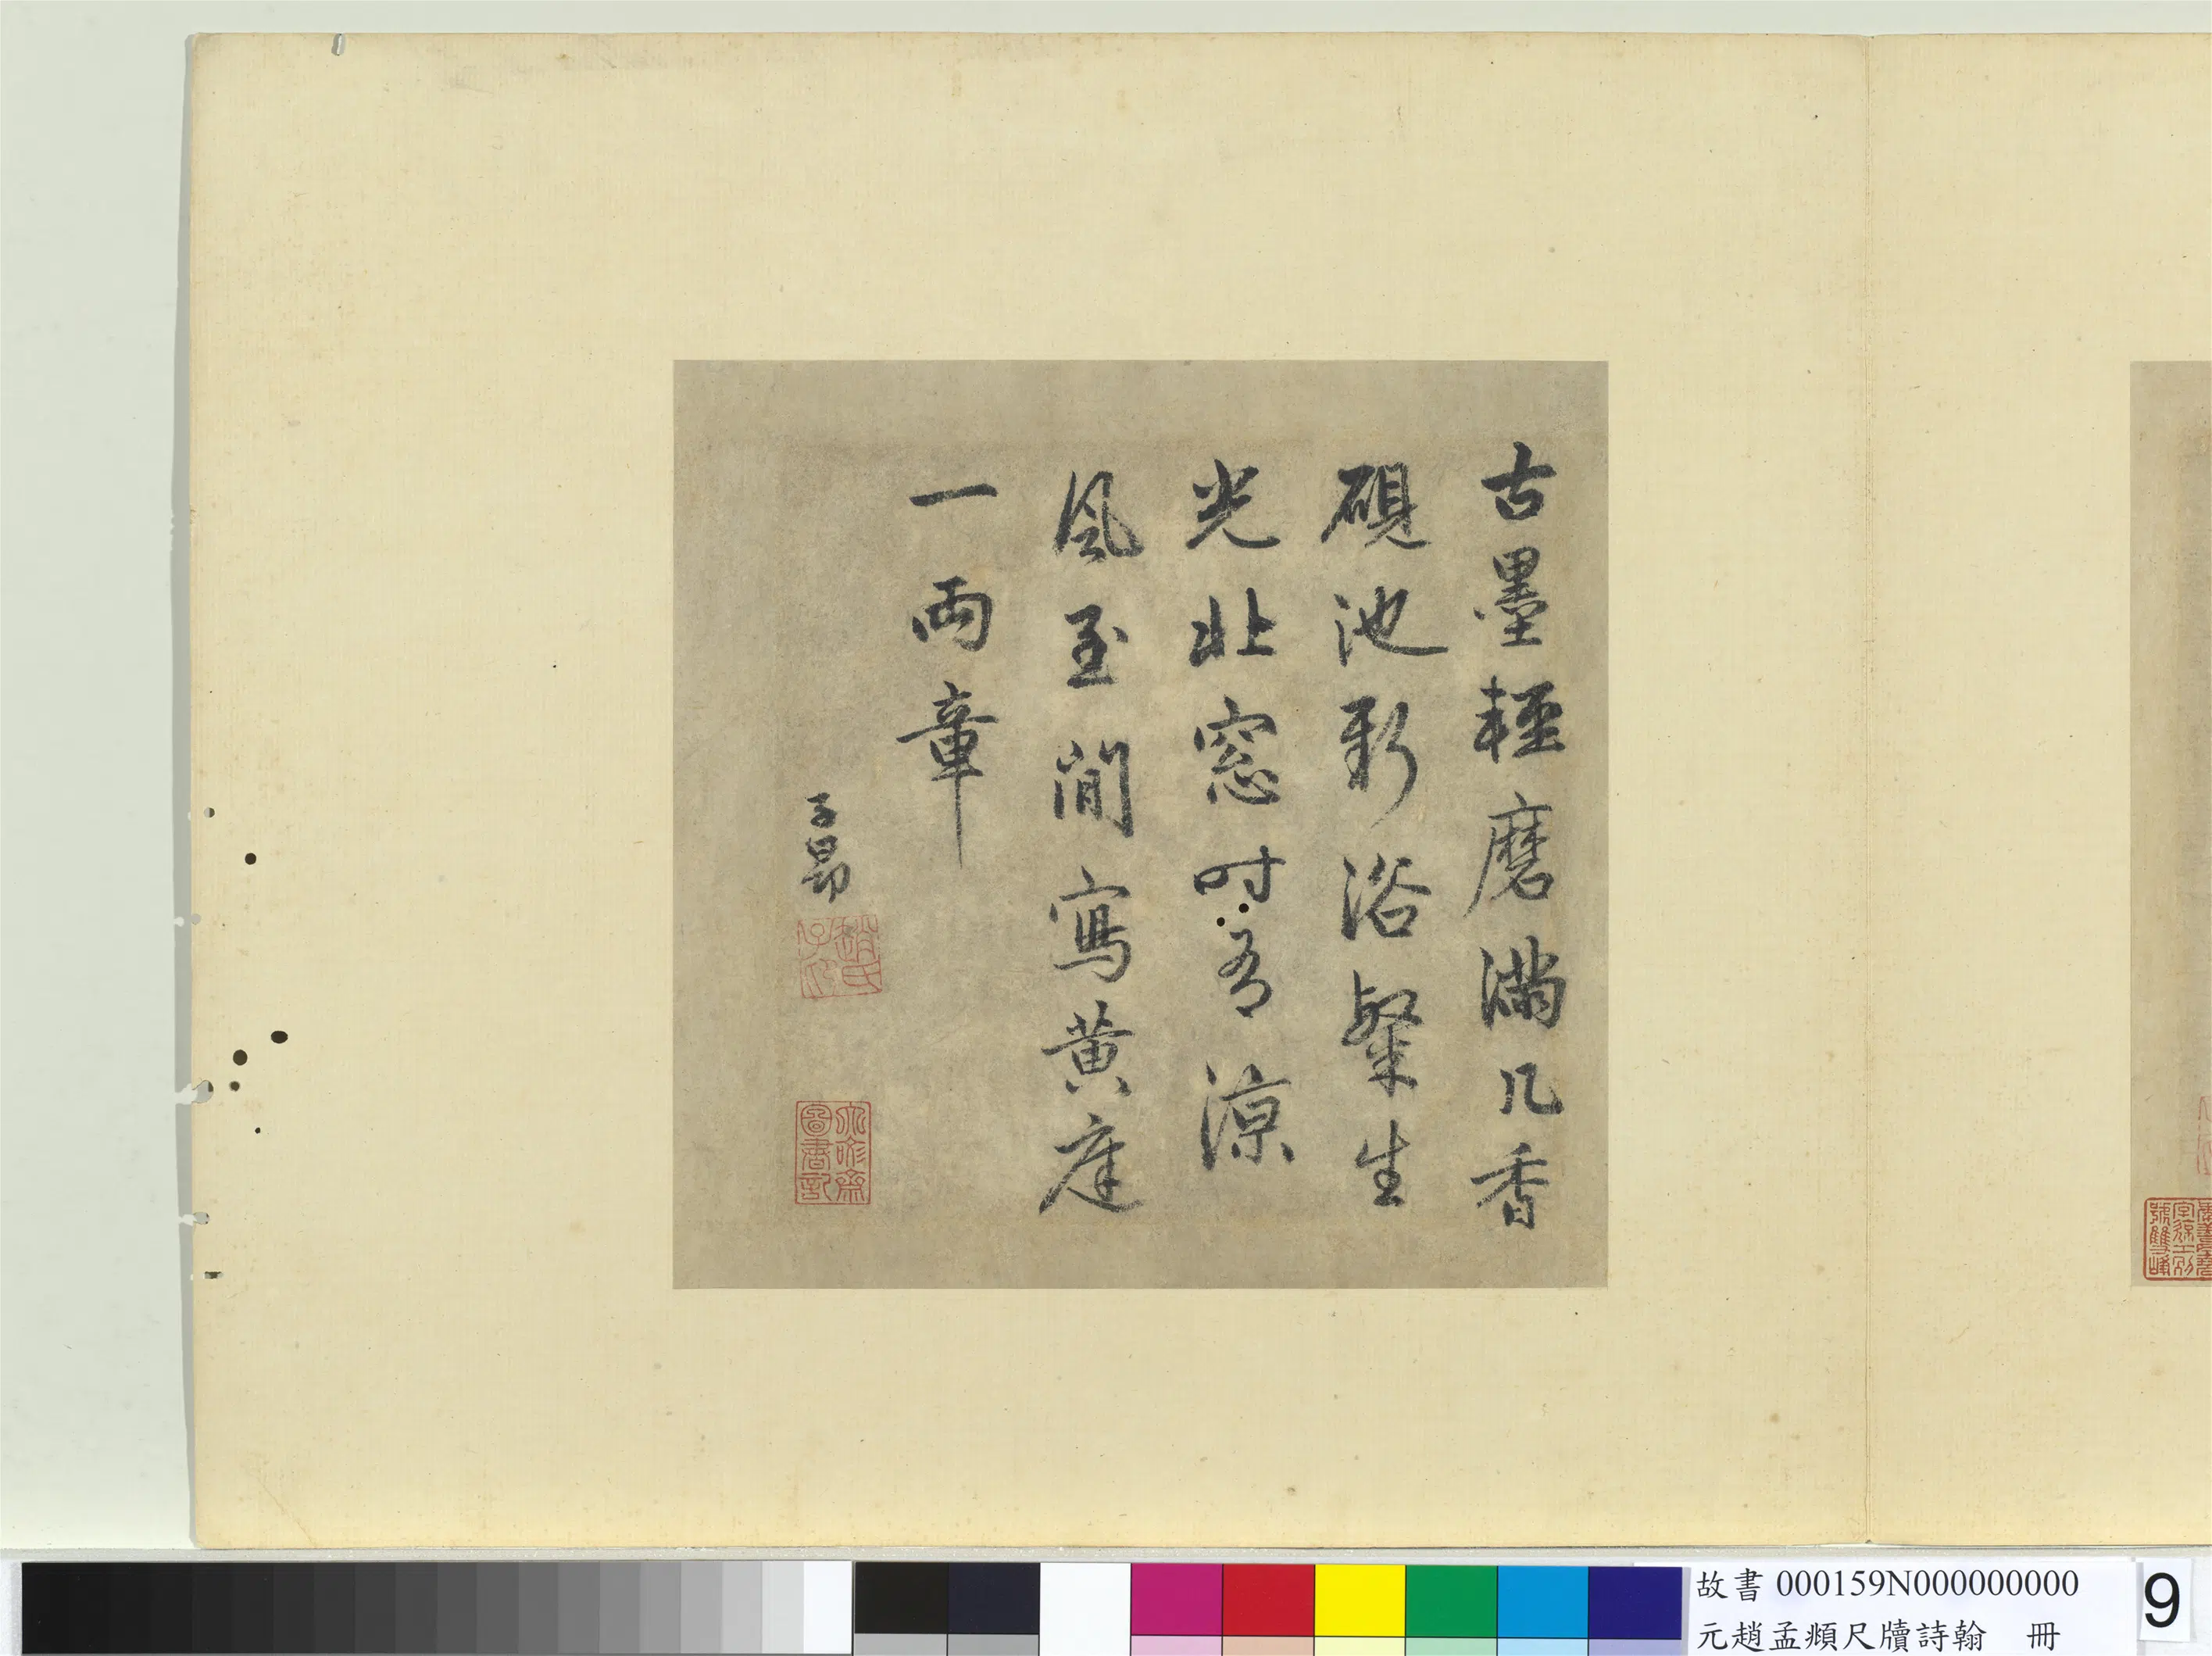 古墨輕磨滿几香
硯池新浴粲生
光北窓時有涼
風至閒寫黄庭
一兩章
子昂
趙氏子昂
大雅齋圖書記
故書 000159N000000000
元趙孟頫尺牘詩翰　冊
9